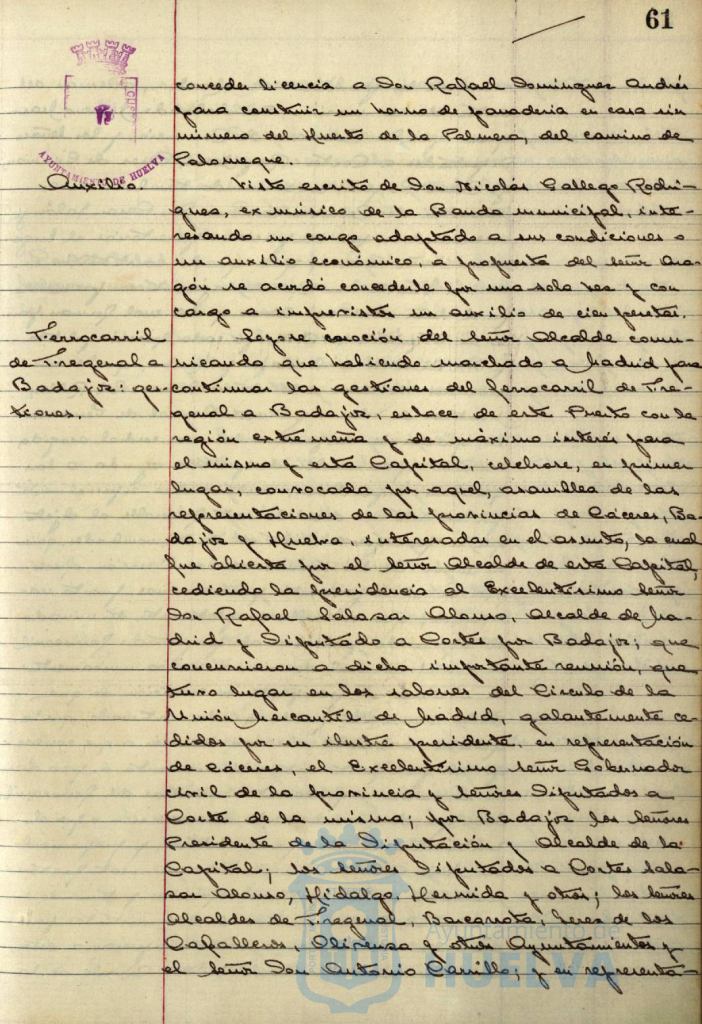 61
conceder licencia a Don Rafael Domínguez Andrés
para construir un horno de panadería en casa sin
número del Huerto de la Palmera, del camino de
Palomeque.
AYUNTAMIENTO DE HUELVA
Auxilio.
Visto escrito de Don Nicolás Gallego Rodrí-
guez, ex músico de la Banda municipal, inte-
resando un cargo adaptado a sus condiciones o
un auxilio económico, a propuesta del Señor Ara-
gón se acordó concederle por una sola vez y con
cargo a imprevistos un auxilio de cien pesetas.
Ferrocarril
de Fregenal a
Badajoz: ges-
tiones.
Leyose moción del Señor Alcalde comu-
nicando que habiendo marchado a Madrid para
continuar las gestiones del ferrocarril de Fre-
genal a Badajoz, enlace de este Puerto con la
región extremeña y de máximo interés para
el mismo y esta Capital, celebrose, en primer
lugar, convocada por aquel, asamblea de las
representaciones de las provincias de Cáceres, Ba-
dajoz y Huelva, interesadas en el asunto, la cual
fue abierta por el Señor Alcalde de esta Capital,
cediendo la presidencia al Excelentísimo Señor
Don Rafael Salazar Alonso, Alcalde de Ma-
drid y Diputado a Cortes por Badajoz; que
concurrieron a dicha importante reunión, que
tuvo lugar en los salones del Círculo de la
Unión Mercantil de Madrid, galantemente ce-
didos por su ilustre presidente, en representación
de Cáceres, el Excelentísimo Señor Gobernador
civil de la provincia y Señores Diputados a
Corte de la misma; por Badajoz los Señores
Presidente de la Diputación y Alcalde de la
Capital; los Señores Diputados a Cortes Sala-
zar Alonso, Hidalgo, Hermida y otros; los Señores
Alcaldes de Fregenal, Barcarrota, Jerez de los
Caballeros, Olivenza y otros Ayuntamientos y
el Señor Don Antonio Carrillo; y en representa-
Ayuntamiento de
HUELVA